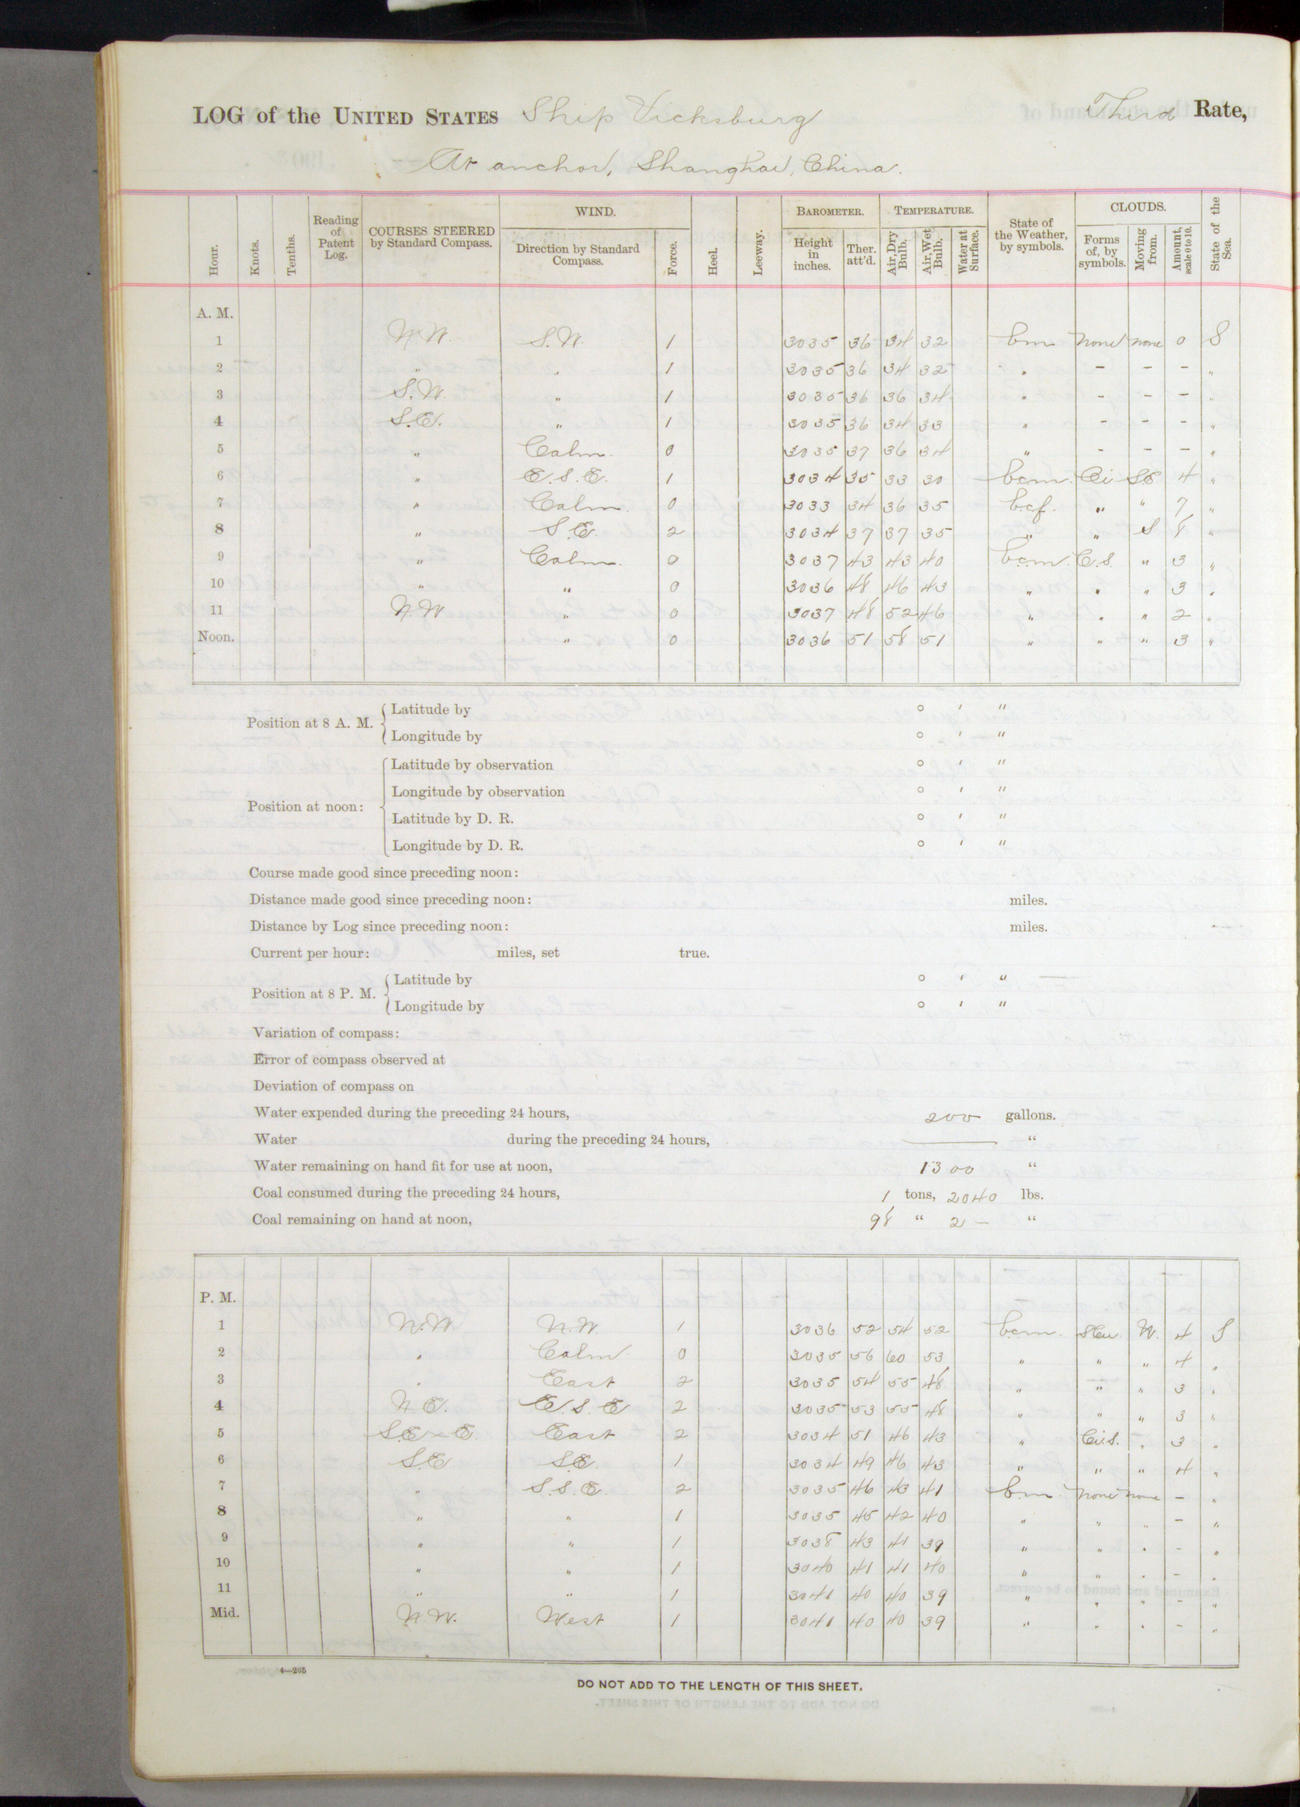 LOG of the UNITED STATES Ship Vicksburg Third Rate,
At anchor, Shanghai, China.
Hour. Knots. Tenths. Reading of Patent Log. COURSES STEERED by Standard Compass. WIND. Direction by Standard Compass. Force. Heel. Leeway. BAROMETER. Height in inches. Ther. att'd. TEMPERATURE. Air, Dry Bulb. Air, Wet Bulb. Water at Surface. State of the Weather, by symbols. CLOUDS. Forms of, by symbols. Moving from. Amount, scale 0 to 10. State of the Sea.
A. M.
1 N.W. S.W. 1 3035 36 34 32 bm none none 0 S
2 " " 1 3035 36 34 32 " - - - "
3 S.W. " 1 3035 36 36 34 " - - - "
4 S.E. " 1 3035 36 34 33 " - - - "
5 " Calm. 0 3035 37 36 34 " - - - "
6 " E.S.E. 1 3034 35 33 30 bcm. Ci SE 4 "
7 " Calm. 0 3033 34 36 35 bcf. " " 7 "
8 " S.E. 2 3034 37 37 35 " " S 8 "
9 " Calm. 0 3037 43 43 40 bcm. C.S. " 3 "
10 " " 0 3036 48 46 43 " " " 3 "
11 N.W " 0 3037 48 52 46 " " " 2 "
Noon. " 0 3036 51 58 51 " " " 3 "
Position at 8 A. M. Latitude by ° ' "
Longitude by ° ' "
Position at noon: Latitude by observation ° ' "
Longitude by observation ° ' "
Latitude by D. R. ° ' "
Longitude by D. R. ° ' "
Course made good since preceding noon:
Distance made good since preceding noon: miles.
Distance by Log since preceding noon: miles.
Current per hour: miles, set true.
Position at 8 P. M. Latitude by ° ' "
Longitude by ° ' "
Variation of compass:
Error of compass observed at
Deviation of compass on
Water expended during the preceding 24 hours, 200 gallons.
Water during the preceding 24 hours, — "
Water remaining on hand fit for use at noon, 1300 "
Coal consumed during the preceding 24 hours, 1 tons, 2040 lbs.
Coal remaining on hand at noon, 98 " 2 - "
P. M.
1 N.W N.W. 1 3036 52 54 52 bcm. SCu. W. 4 S
2 " Calm 0 3035 56 60 53 " " " 4 "
3 " East 2 3035 54 55 48 " " " 3 "
4 N.E. E.S.E 2 3035 53 55 48 " " " 3 "
5 S.E x E. East 2 3034 51 46 43 " Ci.S. " 3 "
6 S.E S.E. 1 3034 49 46 43 " " " 4 "
7 " S.S.E. 2 3035 46 43 41 bm none none - "
8 " " 1 3035 45 42 40 " " " - "
9 " " 1 3038 43 41 39 " " " - "
10 " " 1 3040 41 41 40 " " " - "
11 " " 1 3041 40 40 39 " " " - "
Mid. N.W. West 1 3041 40 40 39 " " " - "
4—265
DO NOT ADD TO THE LENGTH OF THIS SHEET.